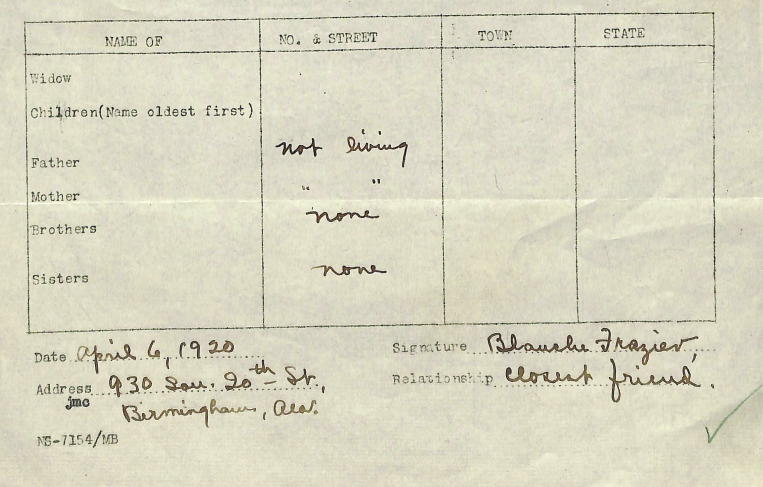 NAME OF NO. & STREET TOWN STATE
Widow
Children(Name oldest first)
Father not living
Mother " "
Brothers none
Sisters none
Date April 6, 1920 Signature Blanche Frazier,
Address 930 Sou. 20th St., Relationship closest friend.
jmc Birmingham, Ala.
NS-7154/MB